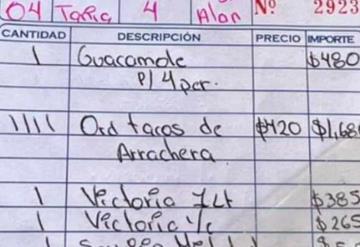 04 Tania 4 Alan Nº 2923
CANTIDAD DESCRIPCIÓN PRECIO IMPORTE
1 Guacamole $480
P/ 4 per.
1111 Ord tacos de $420 $1,680
Arrachera
1 Victoria 1Lt $385
1 Victoria 1/2 $265
1